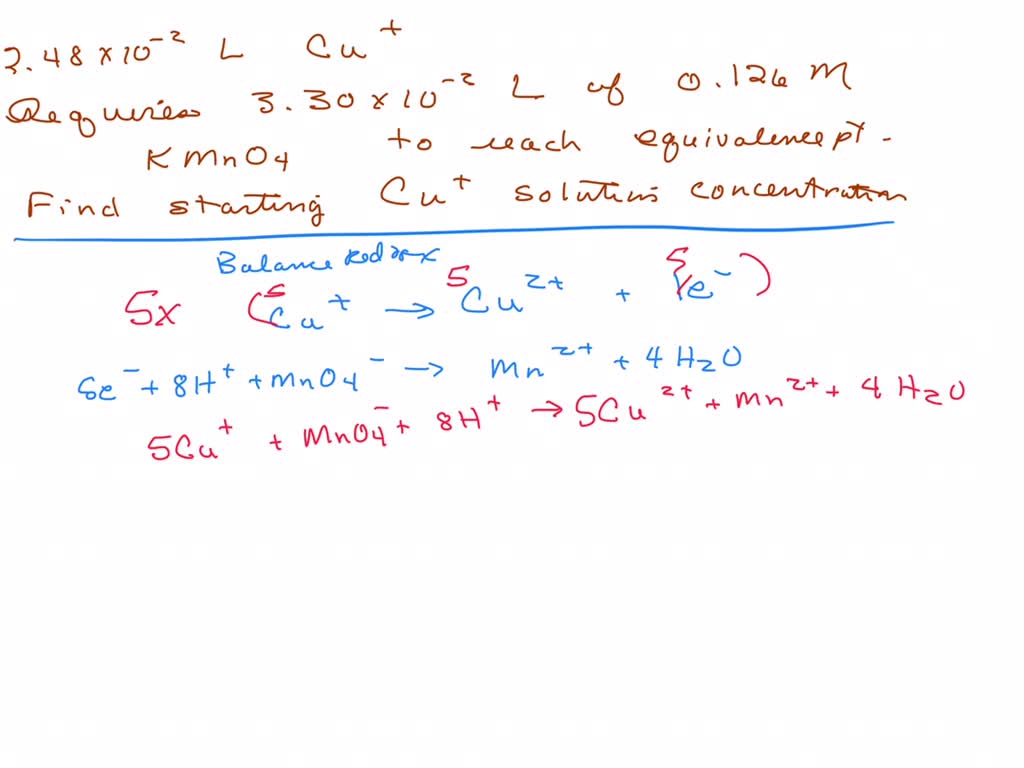 2.48 × 10⁻² L Cu⁺
Requires 3.30 × 10⁻² L of 0.126 M
KMnO4 to reach equivalence pt.
Find starting Cu⁺ solution concentration
Balance redox
5x (5Cu⁺ → 5Cu²⁺ + 5e⁻)
5e⁻ + 8H⁺ + MnO4⁻ → Mn²⁺ + 4H2O
5Cu⁺ + MnO4⁻ + 8H⁺ → 5Cu²⁺ + Mn²⁺ + 4H2O